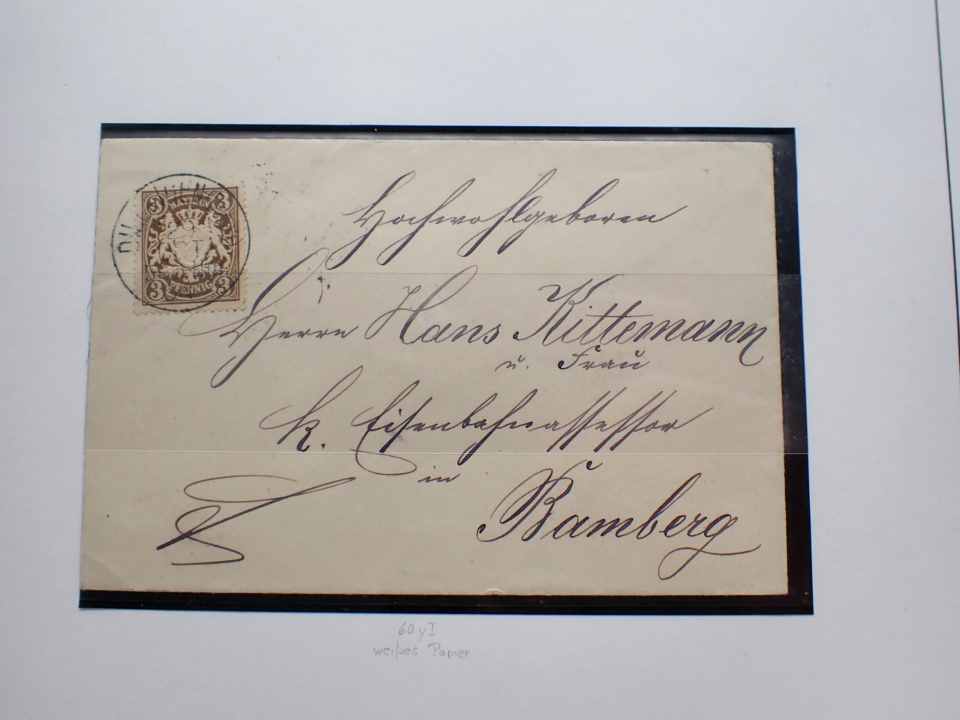 3 BAYERN 3
3 PFENNIG 3
Hochwohlgeboren
Herrn Hans Kittemann
u. Frau
k. Eisenbahnassessor
in
Bamberg
60 y I
weißes Papier